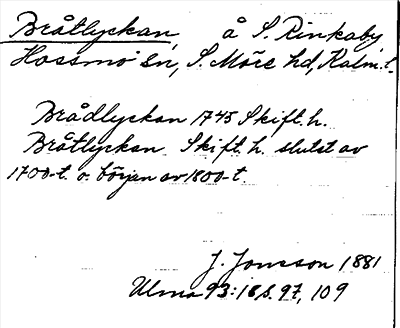 Bråtlyckan, å S. Rinkaby
Hossmo sn, S. Möre hd, Kalm. l.
Brådlyckan 1745 Skift. h.
Bråtlyckan Skift. h. slutet av
1700-t. o. början av 1800-t.
J. Jonsson 1881
Ulma 93:18 s. 97, 109